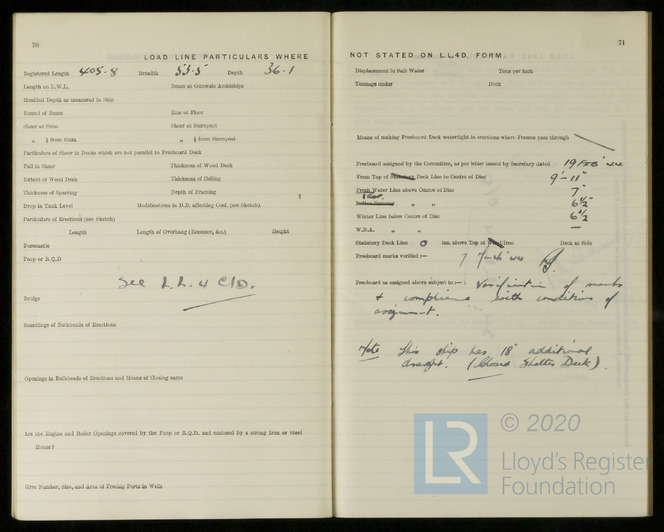 70
LOAD LINE PARTICULARS WHERE
Registered Length 405·8 Breadth 53·5 Depth 36·1
Length on L.W.L. Beam at Gunwale Amidships
Moulded Depth as measured in Ship
Round of Beam Rise of Floor
Sheer at Stem Sheer at Sternpost
„ ⅛ from Stem „ ⅛ from Sternpost
Particulars of Sheer in Decks which are not parallel to Freeboard Deck
Fall in Sheer Thickness of Wood Deck
Extent of Wood Deck Thickness of Ceiling
Thickness of Sparring Depth of Framing
Drop in Tank Level Modifications in D.B. affecting Coef. (see Sketch).
Particulars of Erections (see Sketch)
Length Length of Overhang (Recesses, &c.) Height
Forecastle
Poop or R.Q.D
See L.L. 4 C/D.
Bridge
Scantlings of Bulkheads of Erections
Openings in Bulkheads of Erections and Means of Closing same
Are the Engine and Boiler Openings covered by the Poop or R.Q.D. and enclosed by a strong Iron or Steel
House?
Give Number, Size, and Area of Freeing Ports in Wells
71
NOT STATED ON L.L.4D. FORM
Displacement in Salt Water Tons per inch
Tonnage under Deck
Means of making Freeboard Deck watertight in erections where Frames pass through
Freeboard assigned by the Committee, as per letter issued by Secretary dated 19 FEB
From Top of Statutory Deck Line to Centre of Disc 9'-11"
Fresh Water Line above Centre of Disc 7"
„ „ 6½"
Winter Line below Centre of Disc 6½"
W.N.A. „ „ —
Statutory Deck Line 0 ins. above Top of Wood/Iron Deck at Side
Freeboard marks verified :— 7
Freeboard as assigned above subject to :— Verification of marks
& compliance with conditions of
assignment.
Note This ship has 18" additional
draught. (Closed Shelter Deck).
LR
© 2020
Lloyd's Register
Foundation